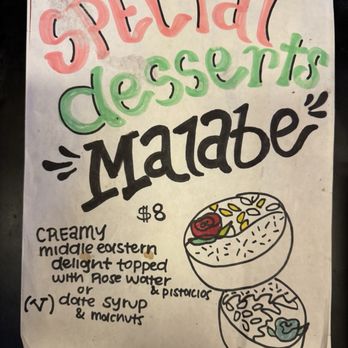 SPECIAL
desserts
"Malabe"
$8
CREAMY
middle eastern
delight topped
with Rose water
& pistacios
or
(V) date syrup
& walnuts